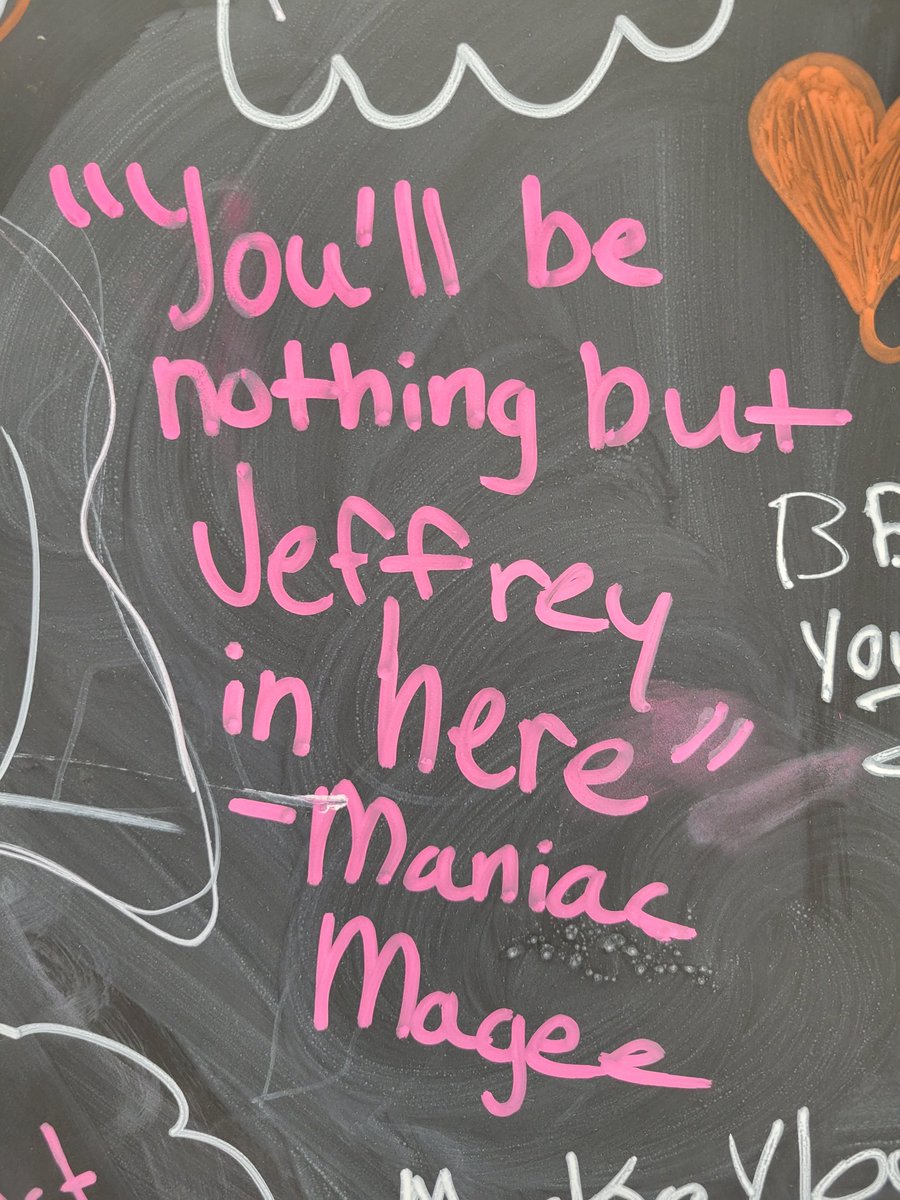 "You'll be
nothing but
Jeffrey
in here"
-Maniac
Magee
B
you